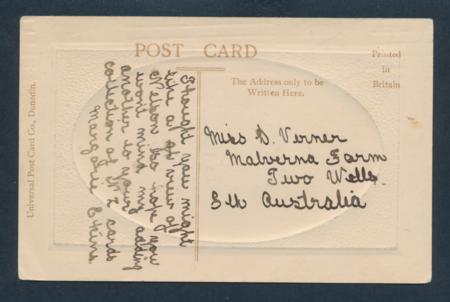 POST CARD
Printed
in
Britain
The Address only to be
Written Here.
Universal Post Card Co., Dunedin.
Thought you might
like a view of
Nelson So hope you
wont mind my adding
another to your
collection of N Z cards
Marjorie
Miss D. Verner
Malverna Farm
Two Wells.
Sth Australia